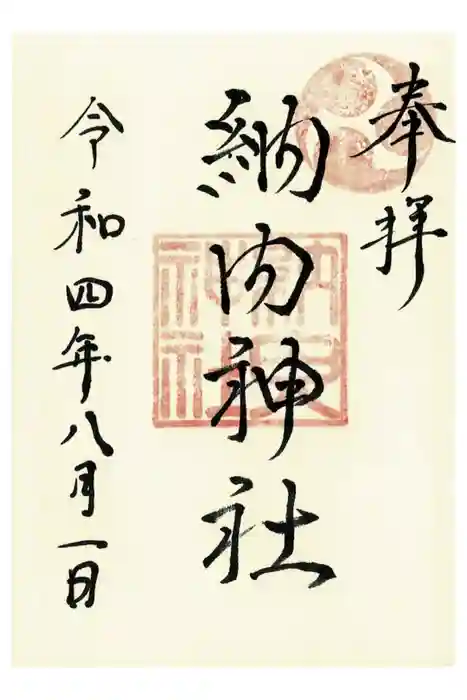 奉拝
納内神社
令和四年八月一日
納内
神社